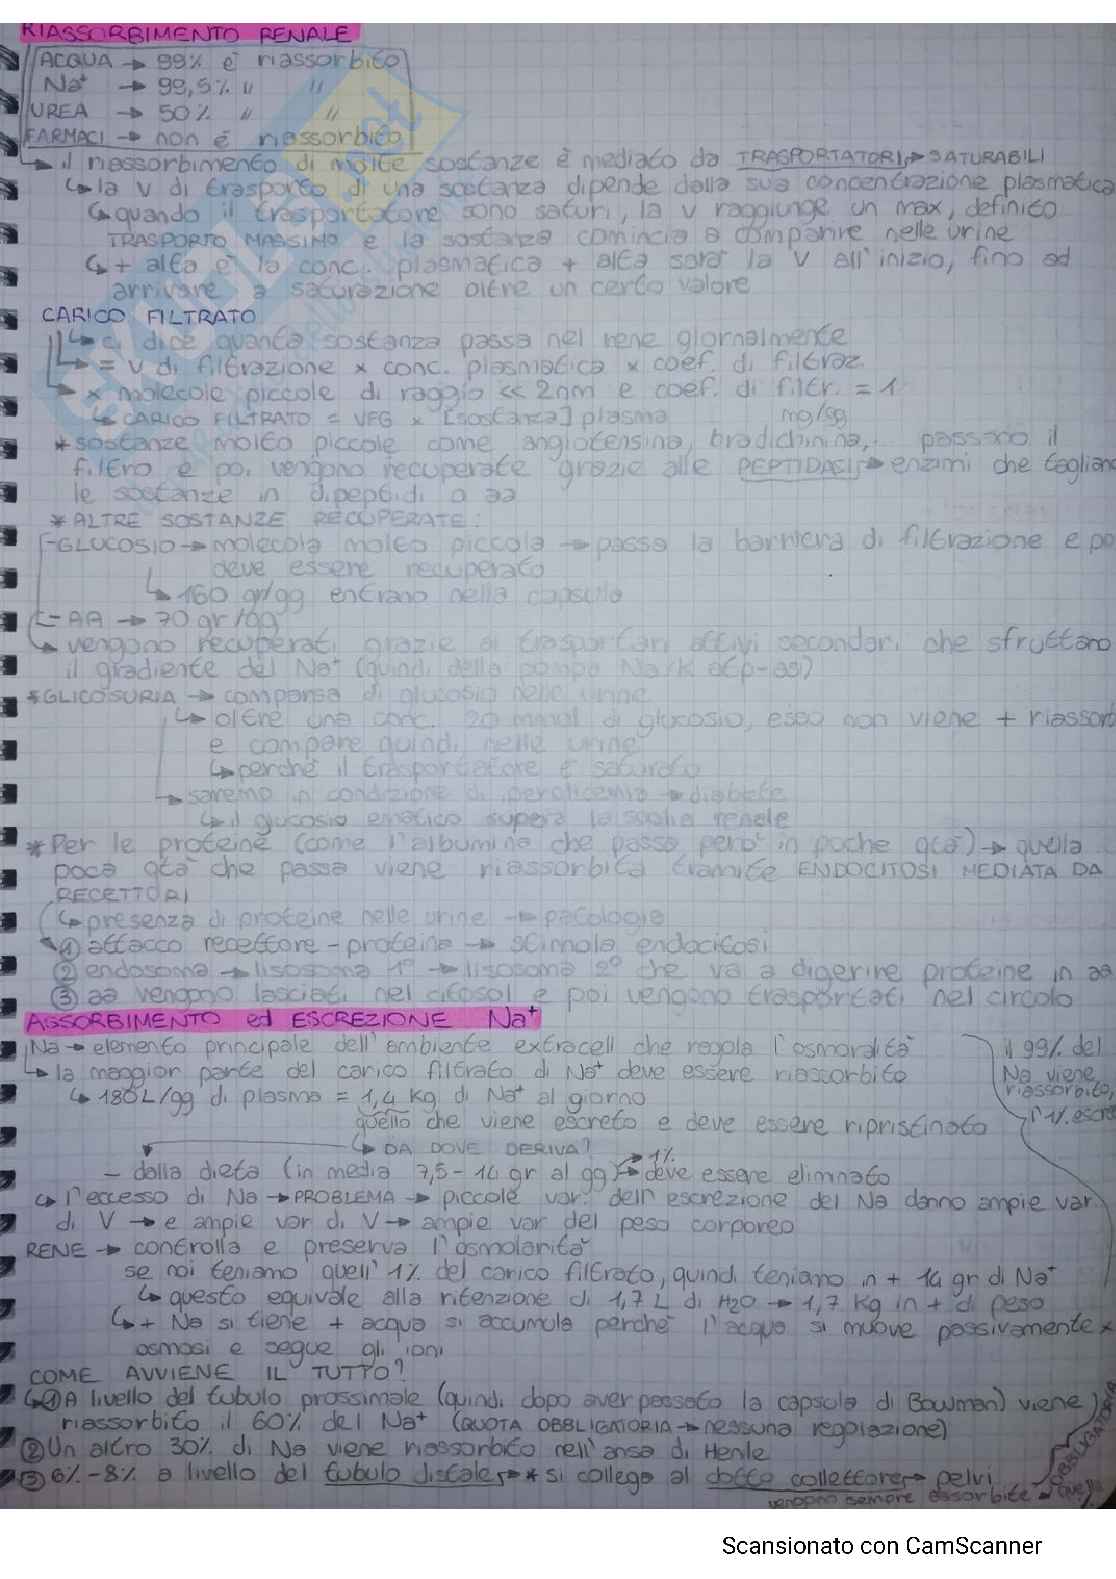 RIASSORBIMENTO RENALE
ACQUA → 99% è riassorbito
Na⁺ → 99,5% " "
UREA → 50% " "
FARMACI → non è riassorbito
↳ il riassorbimento di molte sostanze è mediato da TRASPORTATORI → SATURABILI
↳ la v di trasporto di una sostanza dipende dalla sua concentrazione plasmatica
↳ quando il trasportatore sono saturi, la v raggiunge un max, definito
TRASPORTO MASSIMO e la sostanza comincia a comparire nelle urine
↳ + alta è la conc. plasmatica + alta sarà la v all'inizio, fino ad
arrivare a saturazione oltre un certo valore
CARICO FILTRATO
↳ ci dice quanta sostanza passa nel rene giornalmente
↳ = v di filtrazione × conc. plasmatica × coef. di filtraz.
↳ × molecole piccole di raggio << 2nm e coef. di filtr. = 1
↳ CARICO FILTRATO = VFG × [sostanza] plasma mg/gg
* sostanze molto piccole come angiotensina, bradichinina,... passano il
filtro e poi vengono recuperate grazie alle PEPTIDASI → enzimi che tagliano
le sostanze in dipeptidi o aa
* ALTRE SOSTANZE RECUPERATE:
- GLUCOSIO → molecola molto piccola → passa la barriera di filtrazione e poi
deve essere recuperato
↳ 160 gr/gg entrano nella capsula
- AA → 70 gr/gg
↳ vengono recuperati grazie ai trasportari attivi secondari che sfruttano
il gradiente del Na⁺ (quindi della pompa Na/K atp-asi)
* GLICOSURIA → comparsa di glucosio nelle urine
↳ oltre una conc. 20 mmol di glucosio, esso non viene + riassorb
e compare quindi nelle urine
↳ perché il trasportatore è saturato
→ saremo in condizione di iperglicemia → diabete
↳ il glucosio ematico supera la soglia renale
* Per le proteine (come l'albumina che passa però in poche qtà) → quella
poca qtà che passa viene riassorbita tramite ENDOCITOSI MEDIATA DA
RECETTORI
↳ presenza di proteine nelle urine → patologie
① attacco recettore - proteina → stimola endocitosi
② endosoma → lisosoma 1° → lisosoma 2° che va a digerire proteine in aa
③ aa vengono lasciati nel citosol e poi vengono trasportati nel circolo
ASSORBIMENTO ed ESCREZIONE Na⁺
Na → elemento principale dell'ambiente extracell che regola l'osmolarità
il 99% del
Na viene
riassorbito,
l'1% escre
↳ la maggior parte del carico filtrato di Na⁺ deve essere riassorbito
↳ 180L/gg di plasma = 1,4 Kg di Na⁺ al giorno
quello che viene escreto e deve essere ripristinato
↳ DA DOVE DERIVA?
- dalla dieta (in media 7,5-14 gr al gg) → 1%
→ deve essere eliminato
↳ l'eccesso di Na → PROBLEMA → piccole var. dell'escrezione del Na danno ampie var.
di V → e ampie var di V → ampie var del peso corporeo
RENE → controlla e preserva l'osmolarità
se noi teniamo quell'1% del carico filtrato, quindi teniamo in + 14 gr di Na⁺
↳ questo equivale alla ritenzione di 1,7 L di H₂O → 1,7 Kg in + di peso
↳ + Na si tiene + acqua si accumula perché l'acqua si muove passivamente ×
osmosi e segue gli ioni
COME AVVIENE IL TUTTO?
↳ ① A livello del tubulo prossimale (quindi dopo aver passato la capsula di Bowman) viene
riassorbito il 60% del Na⁺ (QUOTA OBBLIGATORIA → nessuna regolazione)
② Un altro 30% di Na viene riassorbito nell'ansa di Henle
③ 6%-8% a livello del tubulo distale → * si collega al dotto collettore → pelvi
vengono sempre assorbite → OBBLIGATORIA
Scansionato con CamScanner